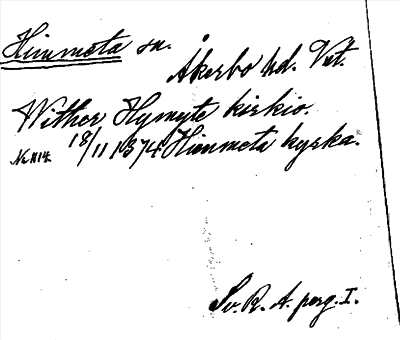 Himmeta sn.
Åkerbo hd. Vstm.
Wither Hymyte kirkio.
18/11 1374 Himmeta kyrka.
Sv. R. A. perg. I.